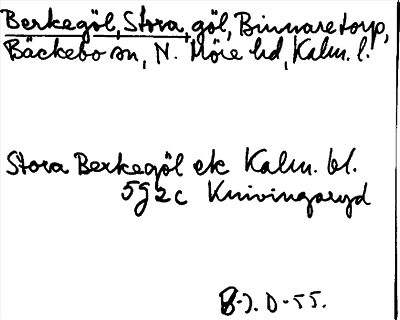 Berkegöl, Stora, göl, Binnaretorp,
Bäckebo sn, N. Möre hd, Kalm. l.
Stora Berkegöl ek Kalm. bl.
5g2c Knivingaryd
B-J. D-55.